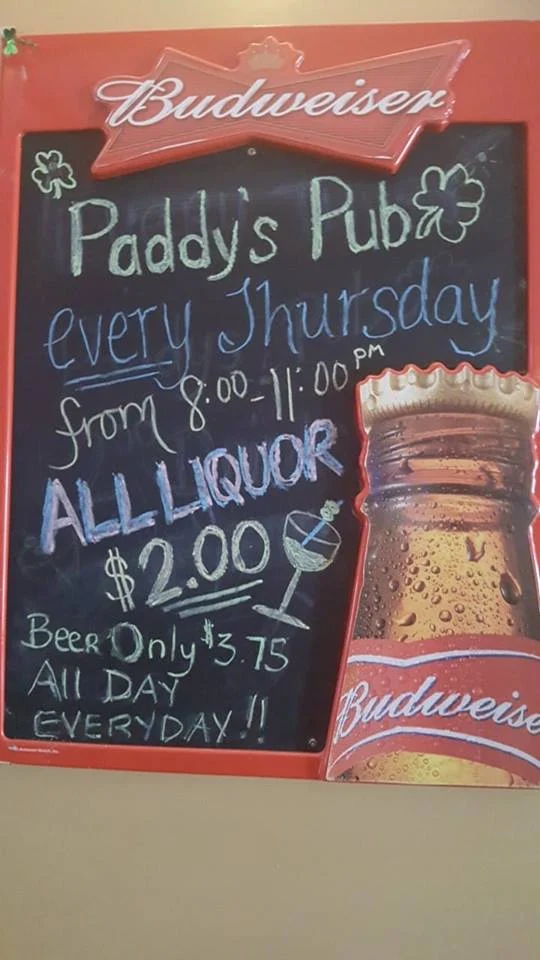 Budweiser
Paddy's Pub
every Thursday
from 8:00-11:00 PM
ALL LIQUOR
$2.00
Beer Only $3.75
All DAY
EVERYDAY!!
Budweise